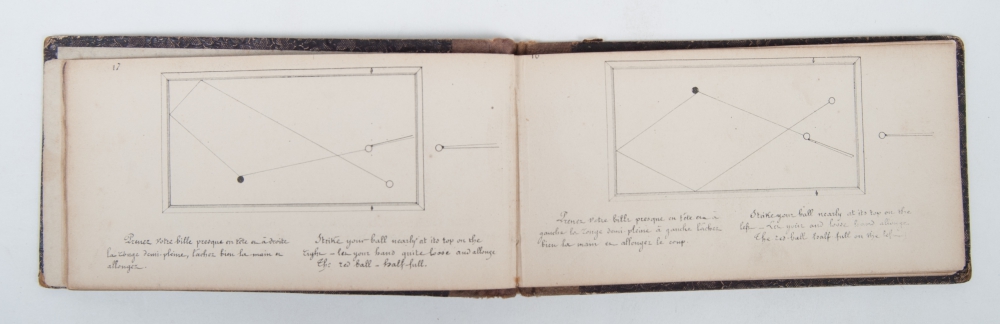 17
Prenez votre bille presque en tête et à droite
la rouge demi-pleine, lachez bien la main en
allongez.
Strike your ball nearly at its top on the
right - let your hand quite loose and allonge
The red ball - half-full.
Prenez votre bille presque en tête et à
gauche la rouge demi-pleine à gauche lachez
bien la main en allongez le coup.
Strike your ball nearly at its top on the
left - let your hand loose hand allonge
The red ball half full on the left.